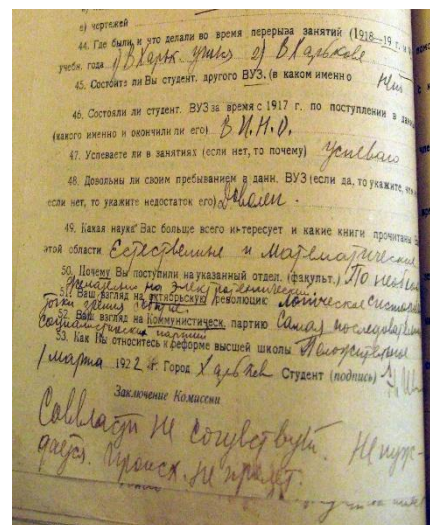 е) чертежей
44. Где были и что делали во время перерыва занятий (1918—19 г. и
учебн. года В Харьк. В Харькове
45. Состоите ли Вы студент. другого ВУЗ. (в каком именно Нет
46. Состояли ли студент. ВУЗ за время с 1917 г. по поступлении в данн
(какого именно и окончили ли его) в И.Н.О.
47. Успеваете ли в занятиях (если нет, то почему) Успеваю
48. Довольны ли своим пребыванием в данн. ВУЗ (если да, то укажите,
если нет, то укажите недостаток его) Доволен.
49. Какая наука Вас больше всего интересует и какие книги прочитаны
этой области Естественные и Математические
50. Почему Вы поступили на указанный отдел. (факульт.) По
на электротехнический
51. Ваш взгляд на октябрьскую революцию Логическое с
точки зрения
52. Ваш взгляд на Коммунистическ. партию Самая последовательн
социалистическая партий
53. Как Вы относитесь к реформе высшей школы Положительно
1 марта 1922 г. Город Харьков Студент (подпись)
Заключение Комиссии
Соввласти не сочувствует. Не нуж-
дается. Происх. не пролет.